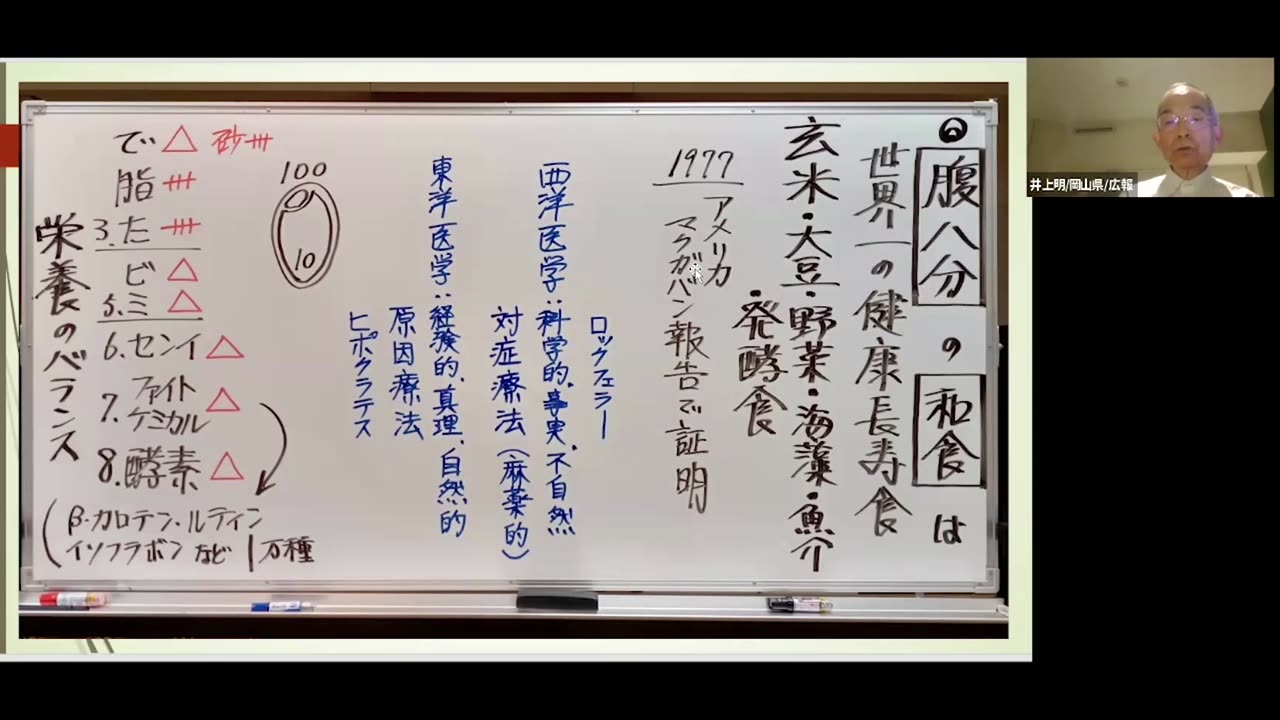 腹八分の和食は
世界一の健康長寿食
玄米・大豆・野菜・海藻・魚介
・発酵食
1977
アメリカ
マクガバン報告で証明
ロックフェラー
西洋医学:科学的、事実、不自然
対症療法(麻薬的)
東洋医学:経験的、真理、自然的
原因療法
ヒポクラテス
100
10
栄養のバランス
で△ 砂卅
脂卅
3.た卅
ビ△
5.ミ△
6.センイ△
7.ファイト
ケミカル△
8.酵素△
(β-カロテン・ルティン
イソフラボンなど1万種
井上明/岡山県/広報